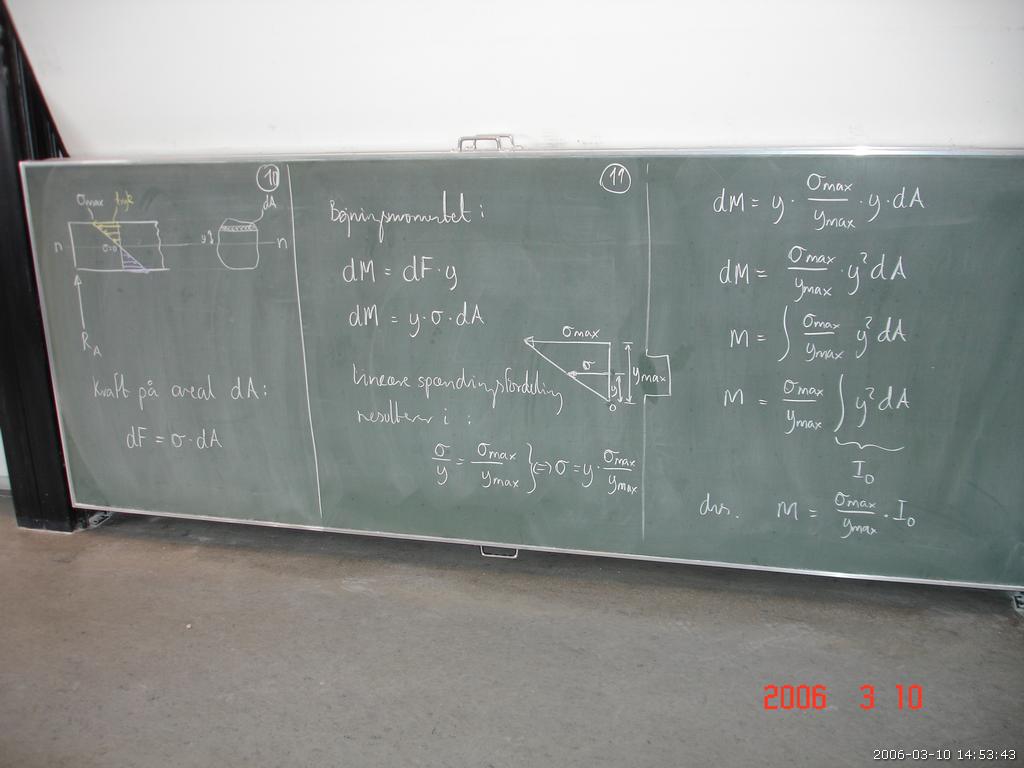 10
σmax
tryk
dA
n
σ=0
y
n
RA
Kraft på areal dA:
dF = σ·dA
11
Bøjningsmomentet:
dM = dF·y
dM = y·σ·dA
σmax
σ
y
ymax
0
Lineære spændingsfordeling
resulterer i:
σ/y = σmax/ymax } ⇔ σ = y·σmax/ymax
dM = y·σmax/ymax·y·dA
dM = σmax/ymax·y²dA
M = ∫ σmax/ymax y²dA
M = σmax/ymax ∫ y²dA
I0
dvs. M = σmax/ymax·I0
2006 3 10
2006-03-10 14:53:43